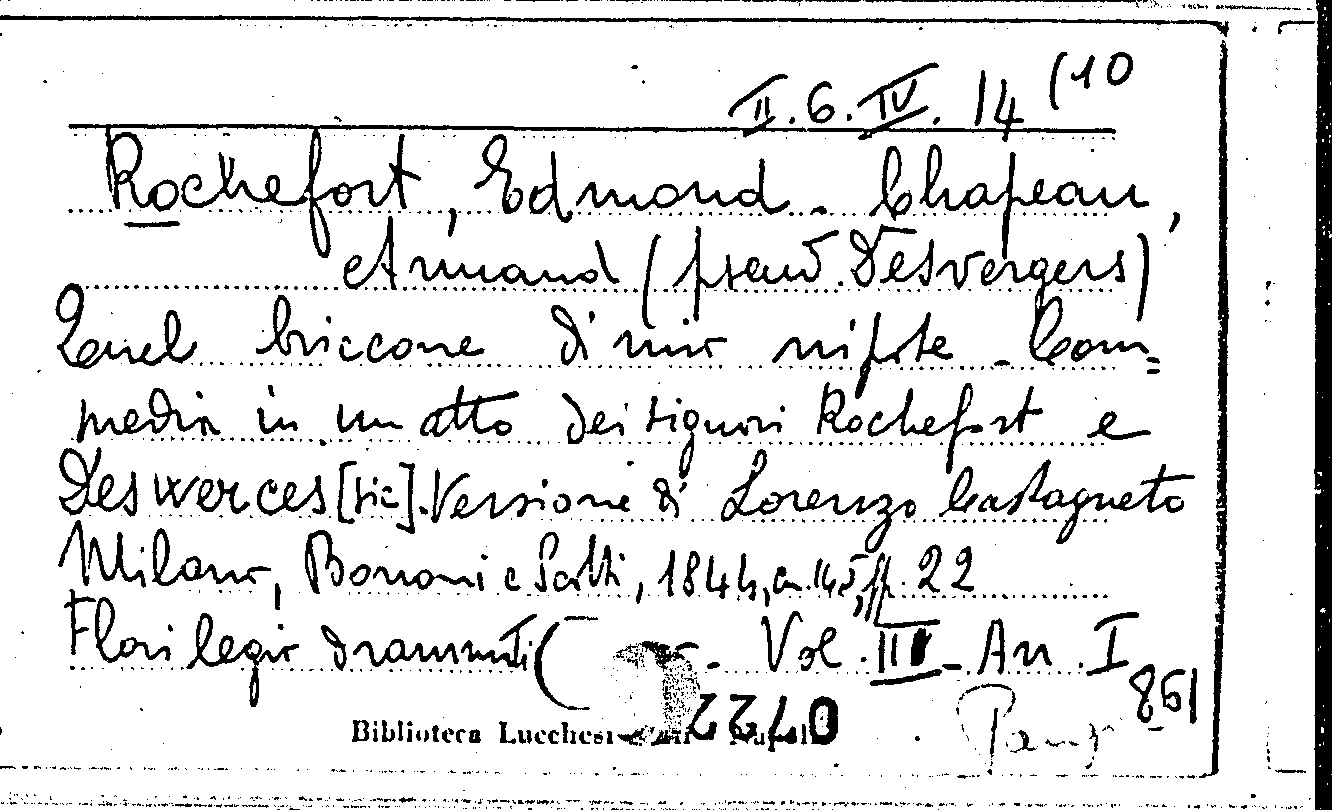 II.6.IV.14 (10
Rochefort, Edmond - Chapeau,
Armand (pseud. Desvergers)
Quel briccone di mio nipote - Com=
media in un atto dei signori Rochefort e
Deswerces [sic]. Versione di Lorenzo Castagneto
Milano, Borroni e Scotti, 1844, in 16, pp. 22
Florilegio - Vol. III - An. I
861
Biblioteca Lucchesi